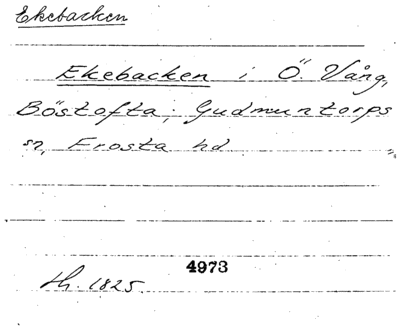 Ekebacken
Ekebacken i Ö. Vång,
Böstofta, Gudmuntorps
sn, Frosta hd
4973
th. 1825